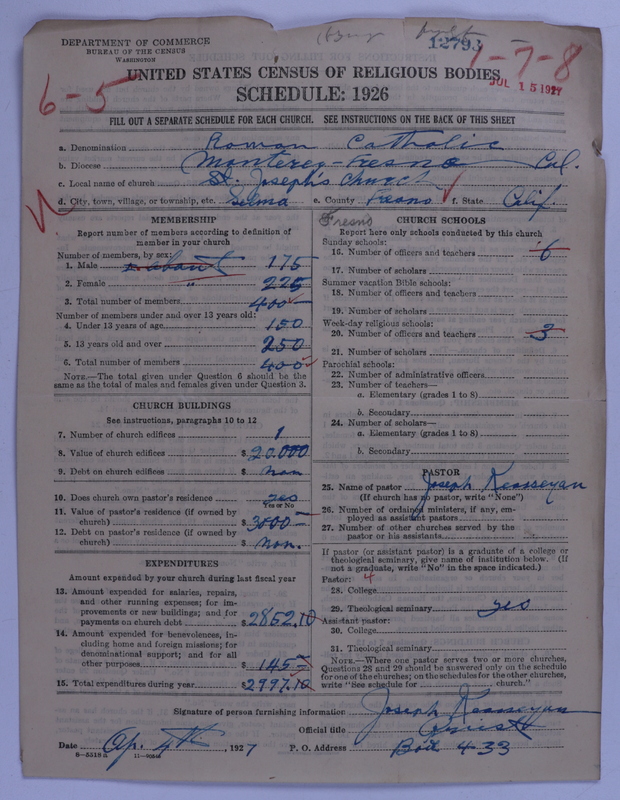 DEPARTMENT OF COMMERCE
BUREAU OF THE CENSUS
WASHINGTON
12793
1-7-8
JUL 15 1927
6-5
UNITED STATES CENSUS OF RELIGIOUS BODIES
SCHEDULE: 1926
FILL OUT A SEPARATE SCHEDULE FOR EACH CHURCH. SEE INSTRUCTIONS ON THE BACK OF THIS SHEET
a. Denomination Roman Catholic
b. Diocese Monterey-Fresno Cal.
c. Local name of church St. Joseph's Church
d. City, town, village, or township, etc. Selma e. County Fresno f. State Calif.
Fresno
MEMBERSHIP
Report number of members according to definition of
member in your church
Number of members, by sex:
1. Male about 175
2. Female " 225
3. Total number of members 400
Number of members under and over 13 years old:
4. Under 13 years of age 150
5. 13 years old and over 250
6. Total number of members 400
NOTE.—The total given under Question 6 should be the
same as the total of males and females given under Question 3.
CHURCH BUILDINGS
See instructions, paragraphs 10 to 12
7. Number of church edifices 1
8. Value of church edifices $ 20.000
9. Debt on church edifices $ non
10. Does church own pastor's residence yes
Yes or No
11. Value of pastor's residence (if owned by
church) $ 3500
12. Debt on pastor's residence (if owned by
church) $ non.
EXPENDITURES
Amount expended by your church during last fiscal year
13. Amount expended for salaries, repairs,
and other running expenses; for im-
provements or new buildings; and for
payments on church debt $ 2852.10
14. Amount expended for benevolences, in-
cluding home and foreign missions; for
denominational support; and for all
other purposes $ 145
15. Total expenditures during year $ 2997.10
CHURCH SCHOOLS
Report here only schools conducted by this church
Sunday schools:
16. Number of officers and teachers 6
17. Number of scholars
Summer vacation Bible schools:
18. Number of officers and teachers
19. Number of scholars
Week-day religious schools:
20. Number of officers and teachers 3
21. Number of scholars
Parochial schools:
22. Number of administrative officers
23. Number of teachers—
a. Elementary (grades 1 to 8)
b. Secondary
24. Number of scholars—
a. Elementary (grades 1 to 8)
b. Secondary
PASTOR
25. Name of pastor Joseph Keosseyan
(If church has no pastor, write "None")
26. Number of ordained ministers, if any, em-
ployed as assistant pastors
27. Number of other churches served by the
pastor or his assistants
If pastor (or assistant pastor) is a graduate of a college or
theological seminary, give name of institution below. (If
not a graduate, write "No" in the space indicated.)
Pastor: 4
28. College
29. Theological seminary yes
Assistant pastor:
30. College
31. Theological seminary
NOTE.—Where one pastor serves two or more churches,
Questions 28 and 29 should be answered only on the schedule
for one of the churches; on the schedules for the other churches,
write "See schedule for church."
Signature of person furnishing information Joseph Keosseyan
Official title
Date Ap. 4th, 1927 P. O. Address Box 433
8-5518a 11-9084